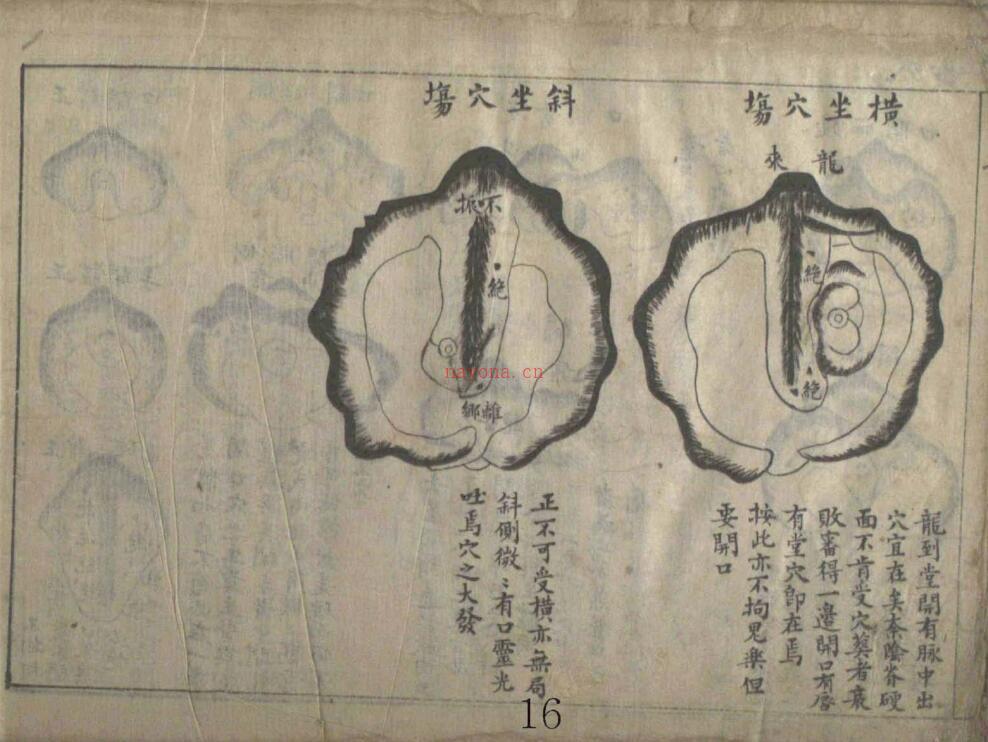 橫坐穴塲
龍來
絕
絕
龍到堂開有脉中出
穴宜在矣奈陰脊硬
面不肯受穴葬者衰
敗審得一邊開口有唇
有堂穴即在焉
按此亦不拘鬼樂但
要開口
斜坐穴塲
不振
絕
離鄉
正不可受橫亦無局
斜側微〻有口靈光
吐焉穴之大發
nayona.cn
16